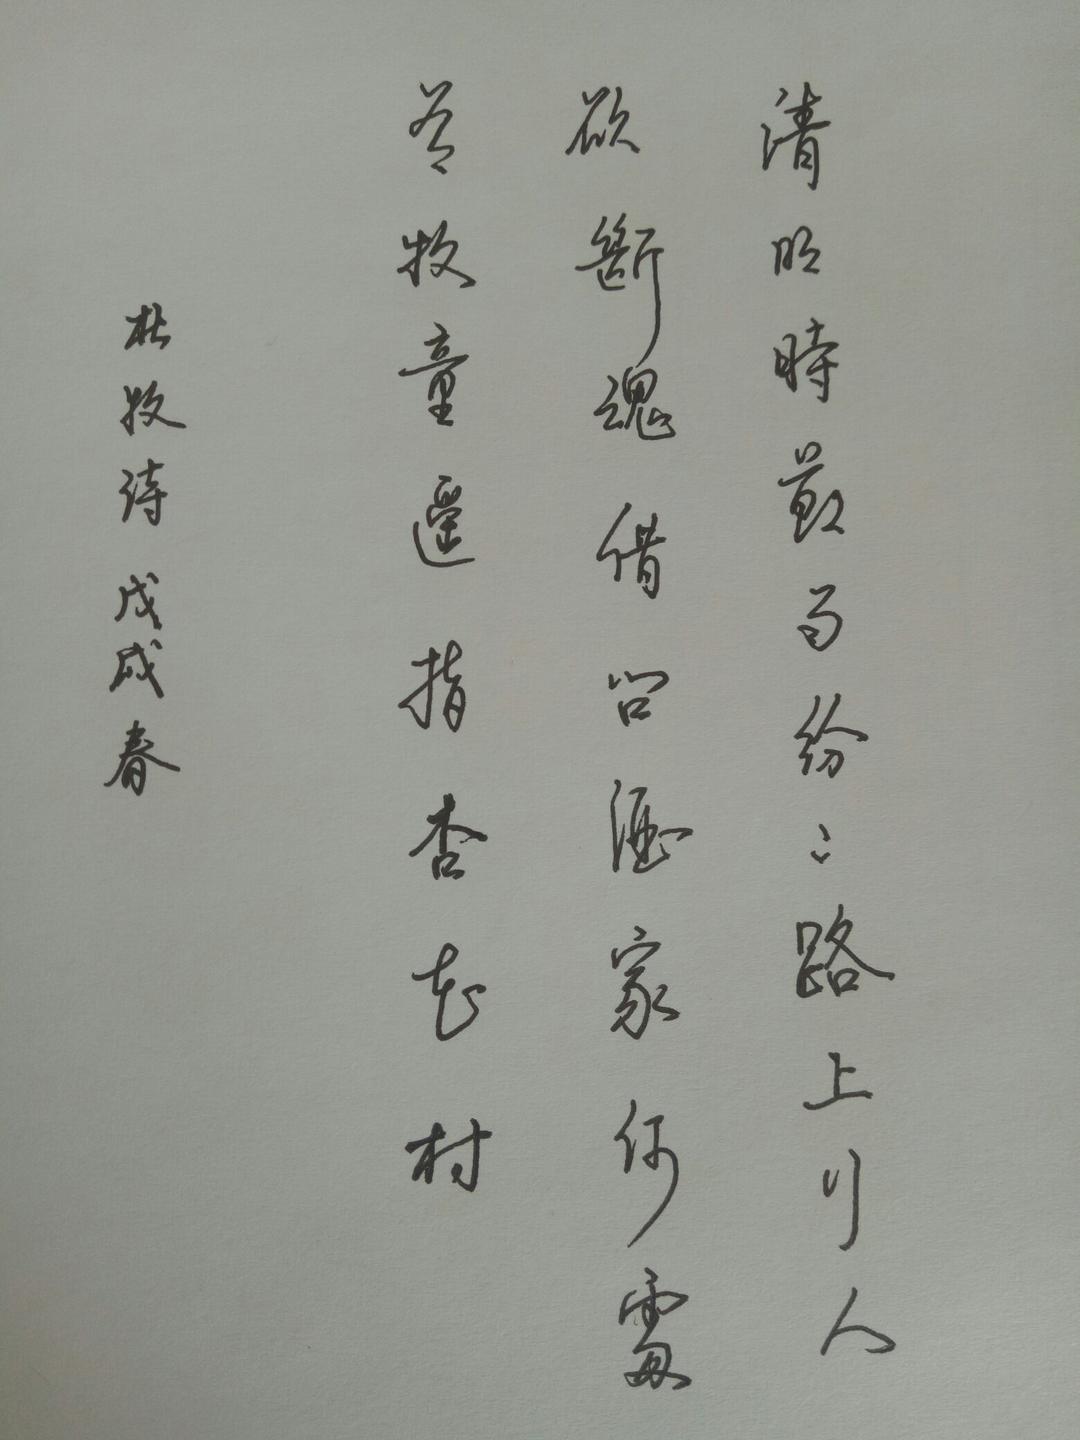 清明時節雨紛〻路上行人
欲斷魂借問酒家何處
有牧童遙指杏花村
杜牧詩戊戌春